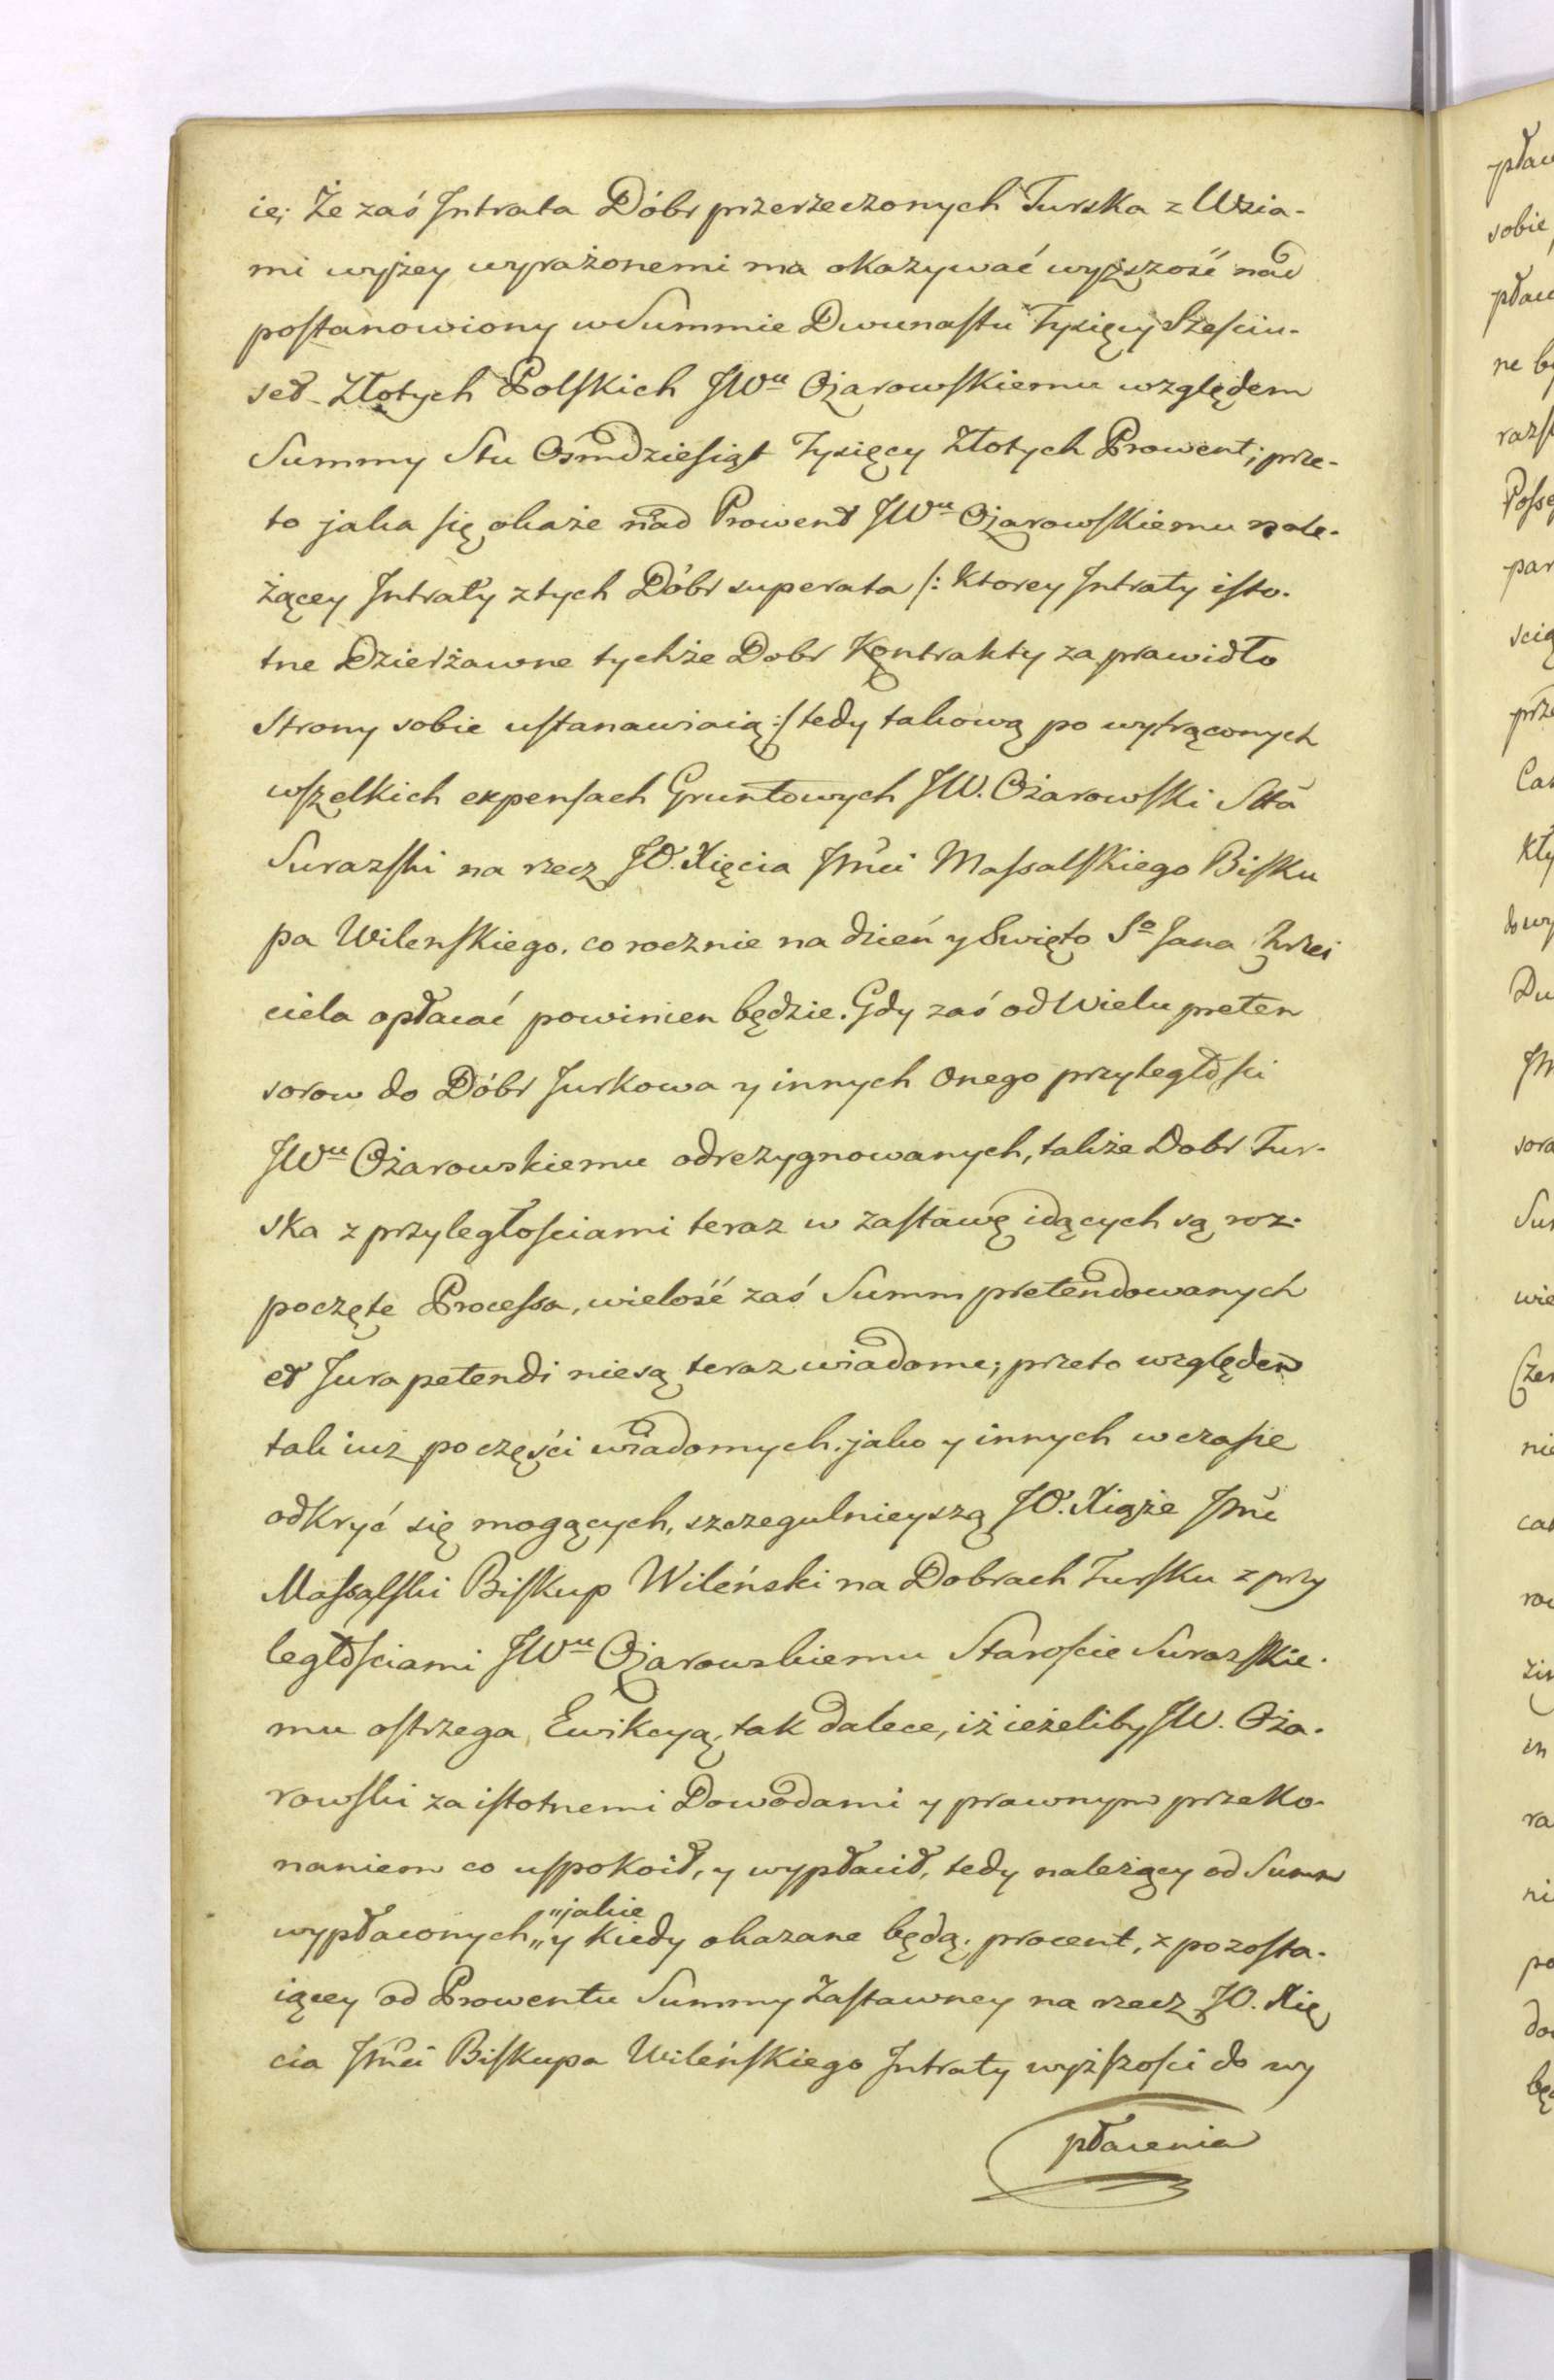 ie; Że zaś Intrata Dóbr przerzeczonych Turska z Wsia-
mi wyżey wyrażonemi ma okazywać wyższość nad
postanowiony w Summie Dwunastu Tysięcy Sześciu-
set Złotych Polskich JWu Ożarowskiemu względem
Summy Stu Osmdziesiąt Tysięcy Złotych Prowent; prze-
to jaka się okaże nad Prowent JWu Ożarowskiemu nale-
żącey Intraty z tych Dóbr superata /: Ktorey Intraty isto-
tne Dzierżawne tychże Dobr Kontrakty za prawidło
Strony sobie ustanawiaią :/ tedy takową po wytrąconych
wszelkich expensach Gruntowych JW. Ożarowski Stta
Surazski na rzecz JO. Xięcia Jmci Massalskiego Bisku
pa Wilenskiego, co rocznie na dzień y Swięto So Jana Krzci
ciela opłacać powinien będzie. Gdy zaś od Wielu preten
sorow do Dóbr Jurkowa y innych onego przyległości
JWu Ożarowskiemu odrezygnowanych, także Dobr Tur-
ska z przyległościami teraz w zastawę idących są roz-
poczęte Processa, wielość zaś Summ pretendowanych
et Jura petendi niesą teraz wiadome; przeto względem
tak iuz po części wiadomych, jako y innych w czasie
odkryć się mogących, szczegulnieyszą JO. Xiąże Jmć
Massalski Biskup Wileński na Dobrach Tursku z przy
ległościami JWu Ożarowskiemu Staroście Surazskie-
mu ostrzega Ewikcyą, tak dalece, iż ieżeliby JW. Oża-
rowski za istotnemi Dowodami y prawnym przeko-
naniem co uspokoił, y wypłacił, tedy należący od Summ
wypłaconych, "jakie y kiedy okazane będą, procent, z pozosta-
iącey od Prowentu Summy Zastawney na rzecz JO. Xię
cia Jmci Biskupa Wileńskiego Intraty wyższości do wy
płacenia